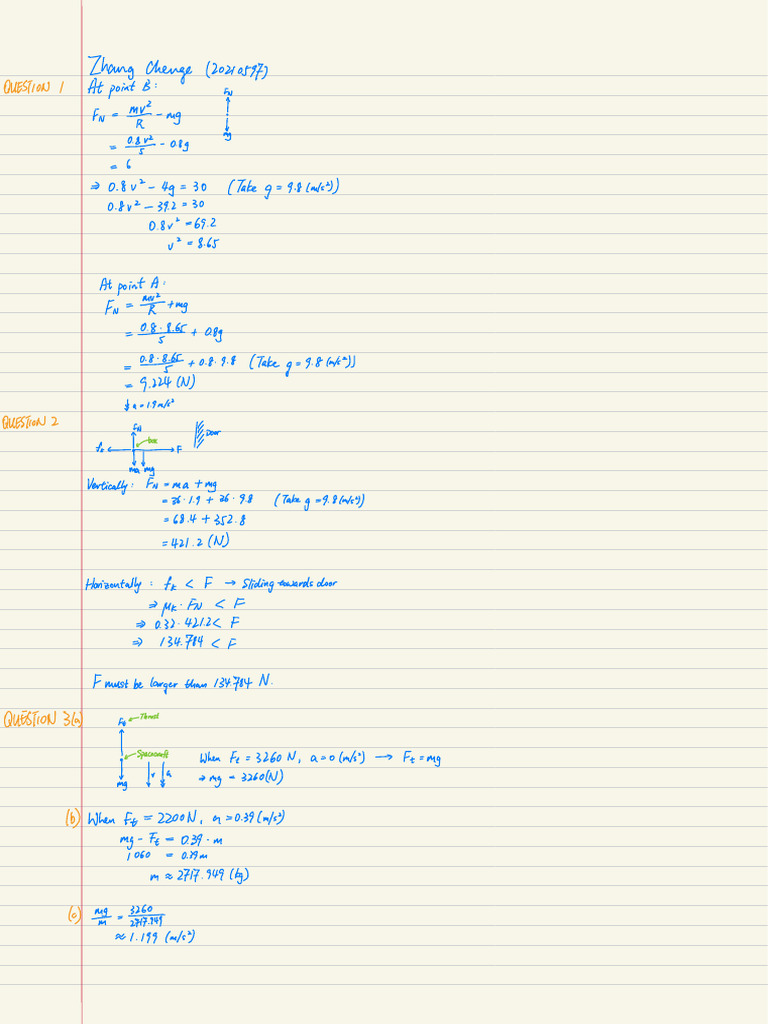 Zhang Chenge (20210597)
QUESTION 1
At point B:
F_N = mv²/R - mg
F_N
mg
= 0.8v²/5 - 0.8g
= 6
⇒ 0.8v² - 4g = 30 (Take g = 9.8 (m/s²))
0.8v² - 39.2 = 30
0.8v² = 69.2
v² = 8.65
At point A:
F_N = mv²/R + mg
= 0.8·8.65/5 + 0.8g
= 0.8·8.65/5 + 0.8·9.8 (Take g = 9.8 (m/s²))
= 9.224 (N)
↓ a = 1.9 m/s²
QUESTION 2
F_N
box
Door
f_k
F
ma mg
Vertically: F_N = ma + mg
= 36·1.9 + 36·9.8 (Take g = 9.8 (m/s²))
= 68.4 + 352.8
= 421.2 (N)
Horizontally: f_k < F → Sliding towards door
⇒ μ_k · F_N < F
⇒ 0.32 · 421.2 < F
⇒ 134.784 < F
F must be larger than 134.784 N.
QUESTION 3(a)
F_t ← Thrust
Spacecraft
v a
mg
When F_t = 3260 N, a = 0 (m/s²) → F_t = mg
⇒ mg = 3260 (N)
(b) When F_t = 2200N, a = 0.39 (m/s²)
mg - F_t = 0.39 · m
1060 = 0.39m
m ≈ 2717.949 (kg)
(c) mg/m = 3260/2717.949
≈ 1.199 (m/s²)